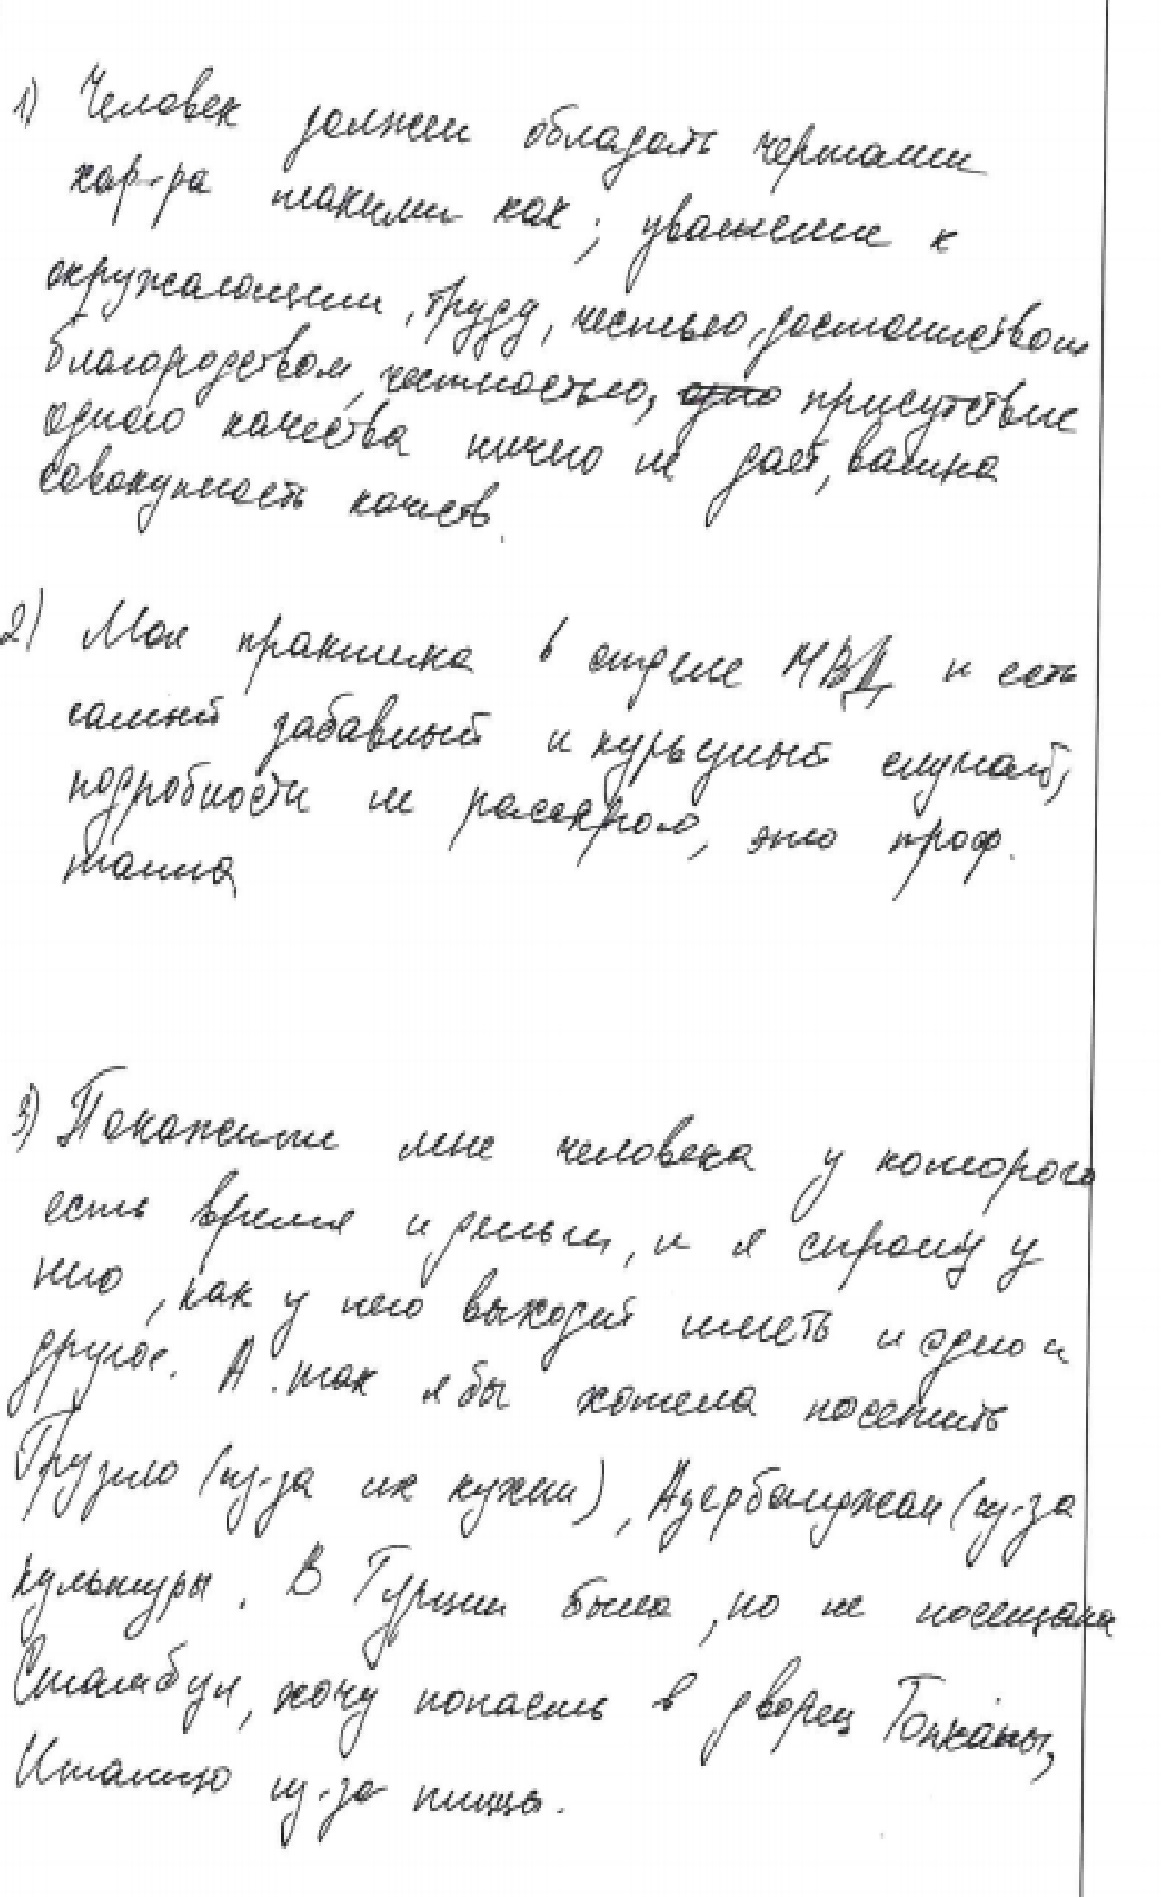 1) Человек должен обладать чертами
хар-ра такими как; уважение к
окружающим, труду, честью, достоинством
благородством, честностью, одно присутствие
одного качества ничего не даёт, важна
совокупность качеств.
2) Моя практика в отделе МВД и есть
самый забавный и курьёзный случай,
подробности не раскрою, это проф.
тайна
3) Покажите мне человека у которого
есть время и деньги, и я спрошу у
него, как у него выходит иметь и одно и
другое. А так я бы хотела посетить
Грузию (из-за их кухни), Азербайджан (из-за
культуры. В Турции была, но не посещала
Стамбул, хочу попасть в дворец Топкапы,
Италию из-за пиццы.